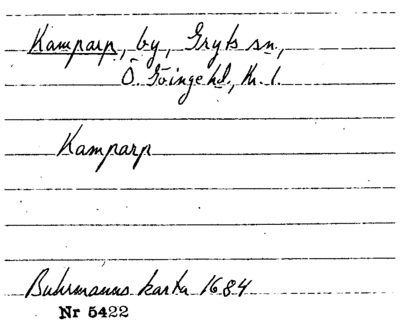 Kamparp, by, Gryts sn,
Ö. Göingehd., Kr. l.
Kamparp
Buhrmanns karta 1684
Nr 5422